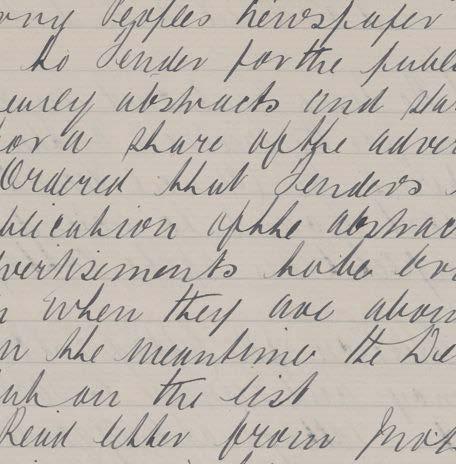 Peoples Newspaper
to Tender for the publi
early abstracts and sta
for a share of the adver
Ordered that Tenders
blication of the abstrac
dvertisements to be
when they are abou
n the meantime the
on the list
Read letter from